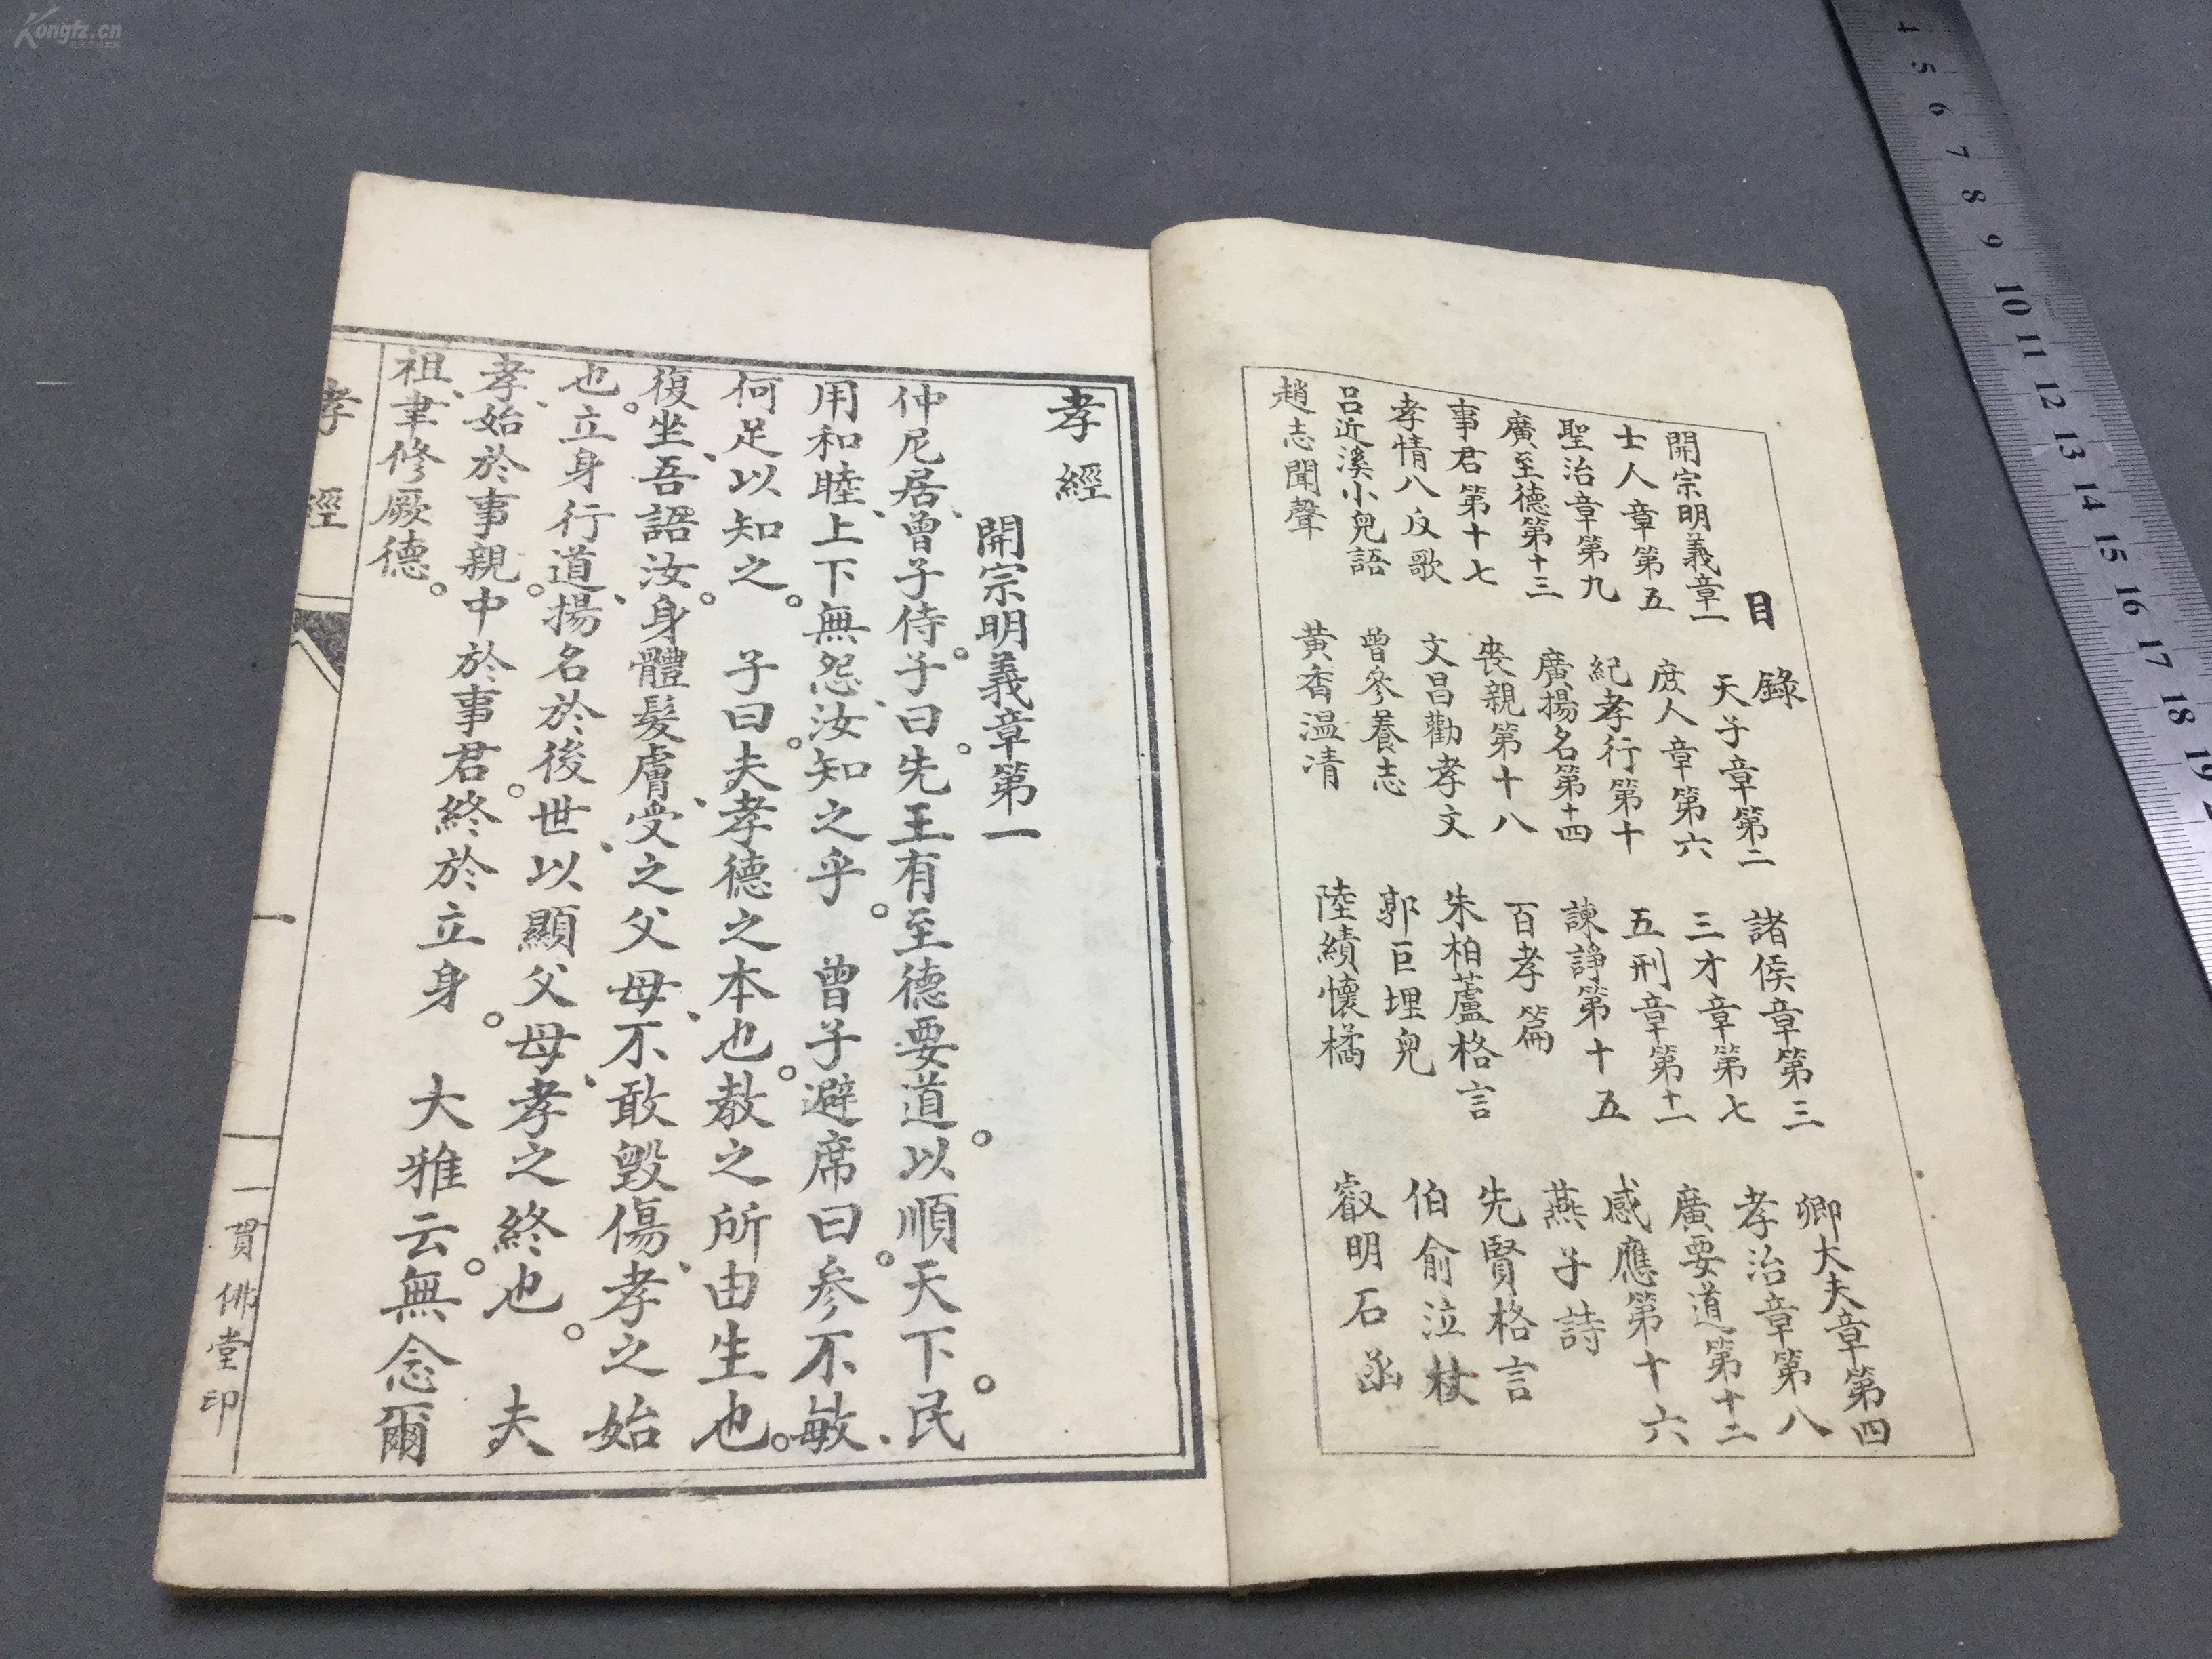 目錄
開宗明義章一 天子章第二 諸侯章第三 卿大夫章第四
士人章第五 庶人章第六 三才章第七 孝治章第八
聖治章第九 紀孝行第十 五刑章第十一 廣要道第十二
廣至德第十三 廣揚名第十四 諫諍第十五 感應第十六
事君第十七 喪親第十八 百孝篇 燕子詩
孝情八反歌 文昌勸孝文 朱柏蘆格言 先賢格言
呂近溪小兒語 曾參養志 郭巨埋兒 伯俞泣杖
趙志聞聲 黃香温清 陸績懷橘 叡明石函
孝經
開宗明義章第一
仲尼居、曾子侍。子曰。先王有至德要道。以順天下。民
用和睦、上下無怨、汝知之乎。 曾子避席曰。參不敏、
何足以知之。 子曰。夫孝德之本也。教之所由生也。
復坐、吾語汝。身體髮膚、受之父母、不敢毀傷、孝之始
也。立身行道、揚名於後世、以顯父母、孝之終也。 夫
孝、始於事親。中於事君。終於立身。 大雅云。無念爾
祖、聿修厥德。
孝經
一
一貫佛堂印
4 5 6 7 8 9 10 11 12 13 14 15 16 17 18 19
Kongfz.cn